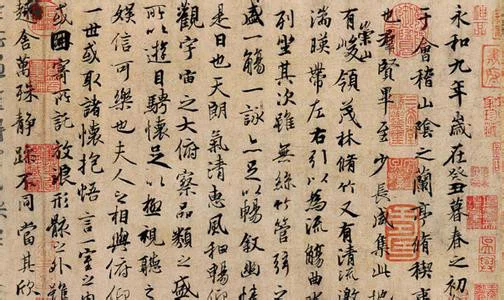 永和九年歲在癸丑暮春之初
于會稽山陰之蘭亭脩稧
也群賢畢至少長咸集此地
有崇山峻領茂林脩竹又有清流激
湍暎帶左右引以為流觴曲水
列坐其次雖無絲竹管弦之
盛一觴一詠亦足以暢敘幽情
是日也天朗氣清惠風和暢
觀宇宙之大俯察品類之盛
所以遊目騁懷足以極視聽之
娛信可樂也夫人之相與俯仰
一世或取諸懷抱悟言一室之內
或因寄所託放浪形骸之外雖
趣舍萬殊靜躁不同當其欣